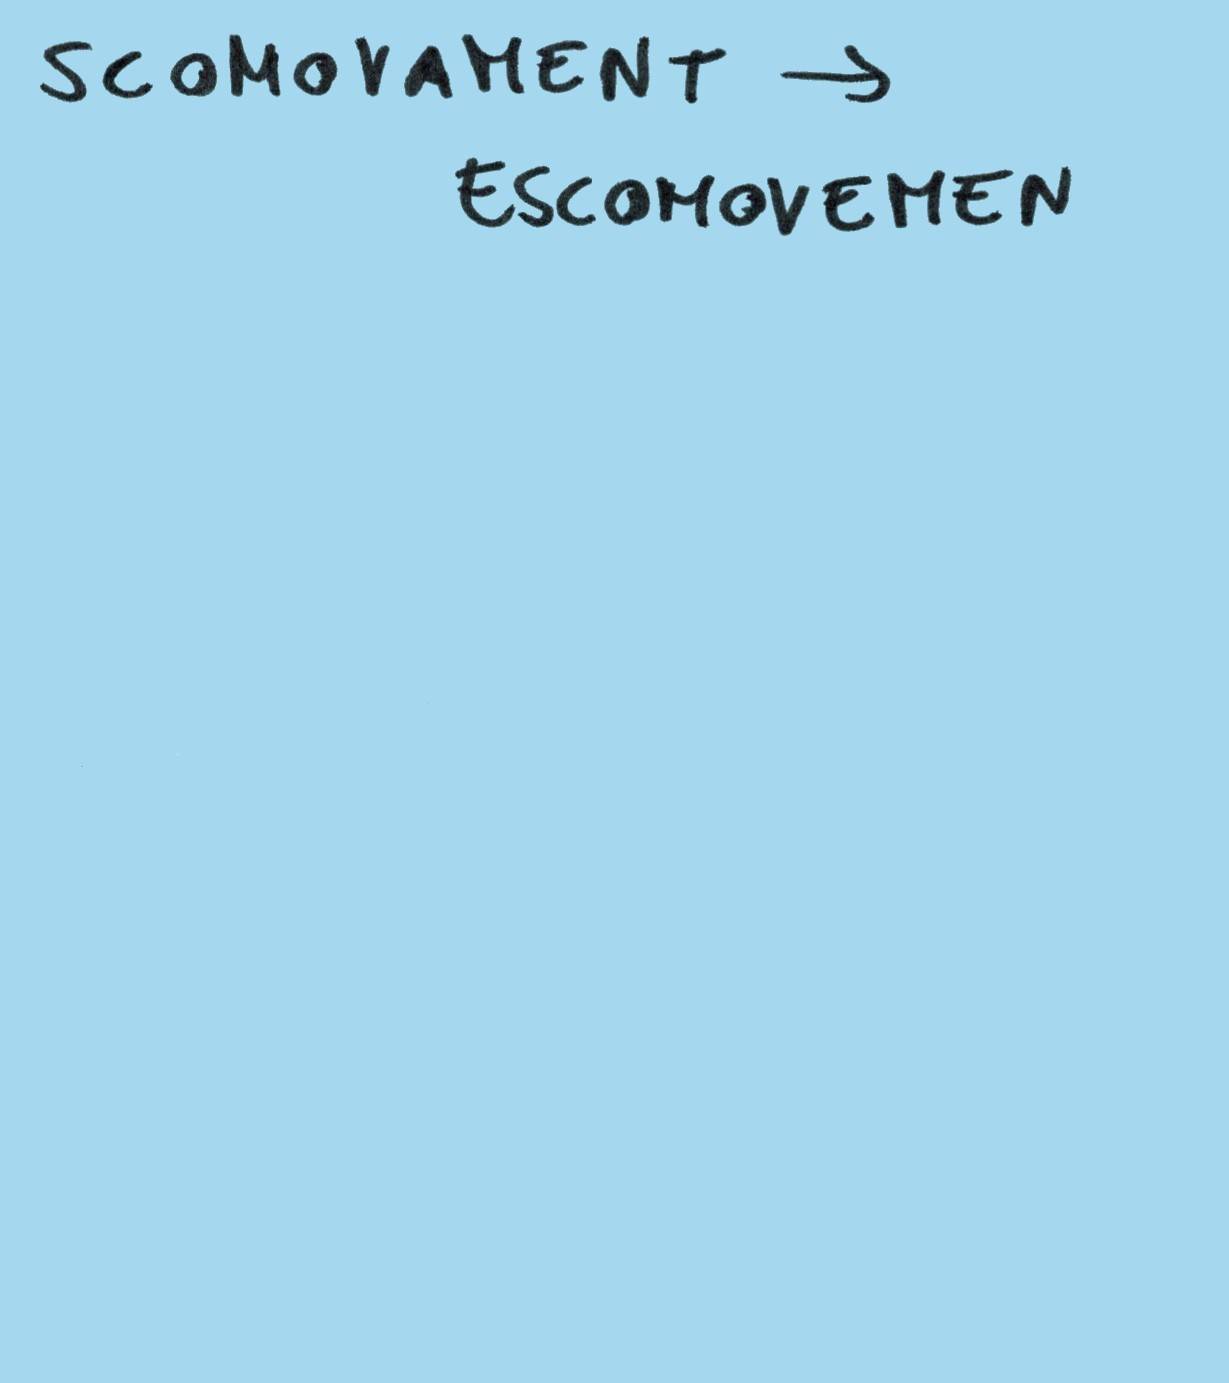 SCOMOVAMENT →
ESCOMOVEMEN